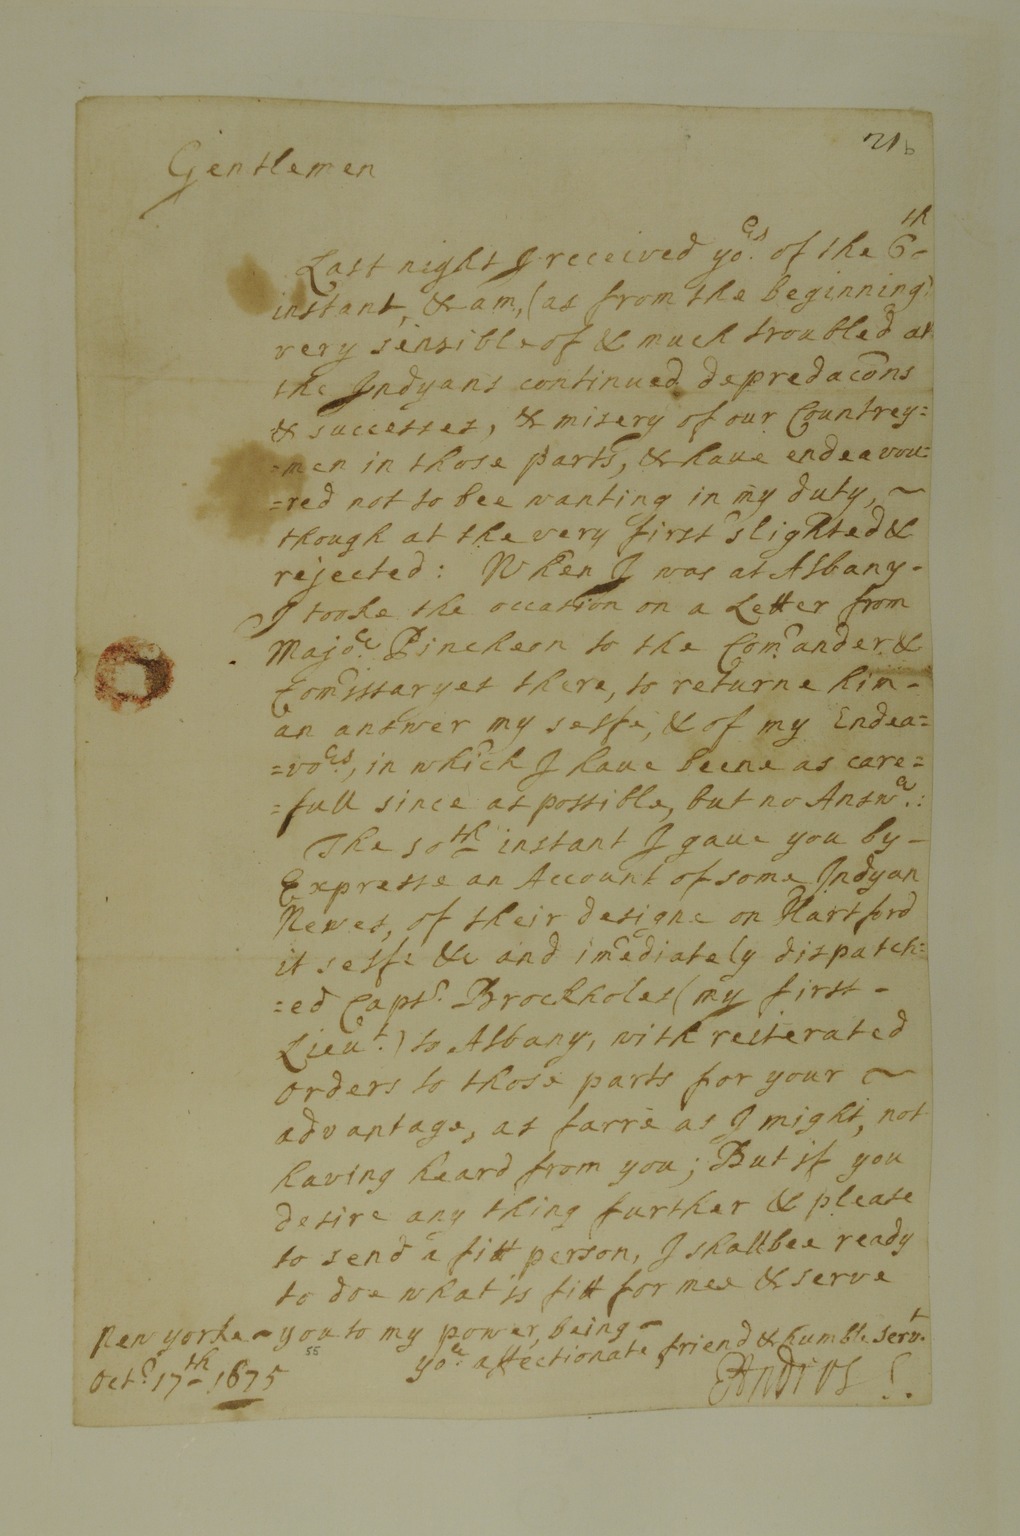 21b
Gentlemen
Last night I received yo.rs of the 6th
instant, & am, (as from the beginning)
very sensible of & much troubled at
the Indyans continued depredacõns
& successes, & misery of our Countrey=
=men in those parts, & haue endeavou=
=red not to bee wanting in my duty, ~
though at the very first slighted &
rejected: When I was at Albany-
I tooke the occation on a Letter from
Majo.r Pincheon to the Com̃ander &
Com̃issaryes there, to returne him-
an answer my selfe, & of my Endea=
=vo.rs, in which I haue beene as care=
=full since as possible, but no Answ.r:
The 10th instant I gaue you by-
Expresse an Account of some Indyan
Newes, of their designe on Hartford
it selfe &c and im̃ediately dispatch=
=ed Capt. Brockholes (my first-
Lieut.) to Albany, with reiterated
orders to those parts for your ~
advantage, as farre as I might, not
having heard from you; But if you
desire any thing further & please
to send a fitt person, I shall bee ready
to doe what is fitt for mee & serve
you to my power, being-
yo.r affectionate friend & humble serv.t
New yorke
Oct.r 17th 1675
55
EAndros S.